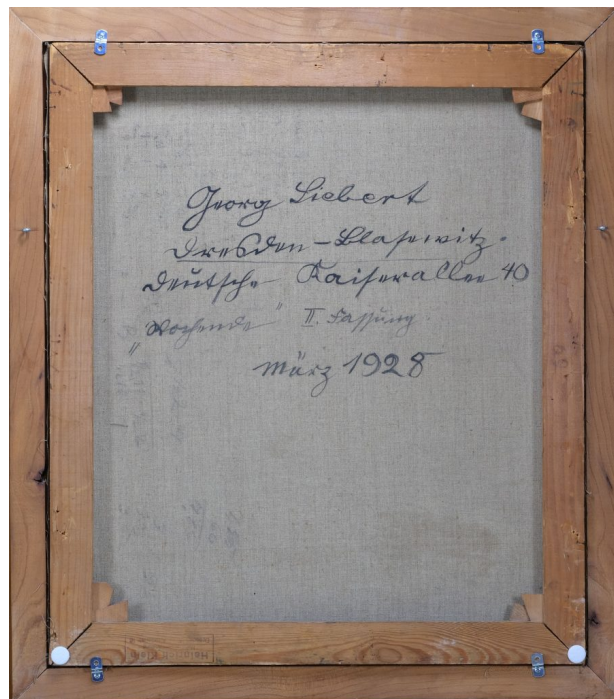 Georg Siebert
Dresden - Blasewitz.
Deutsche Kaiserallee 40
"Wochende" II. Fassung.
März 1928